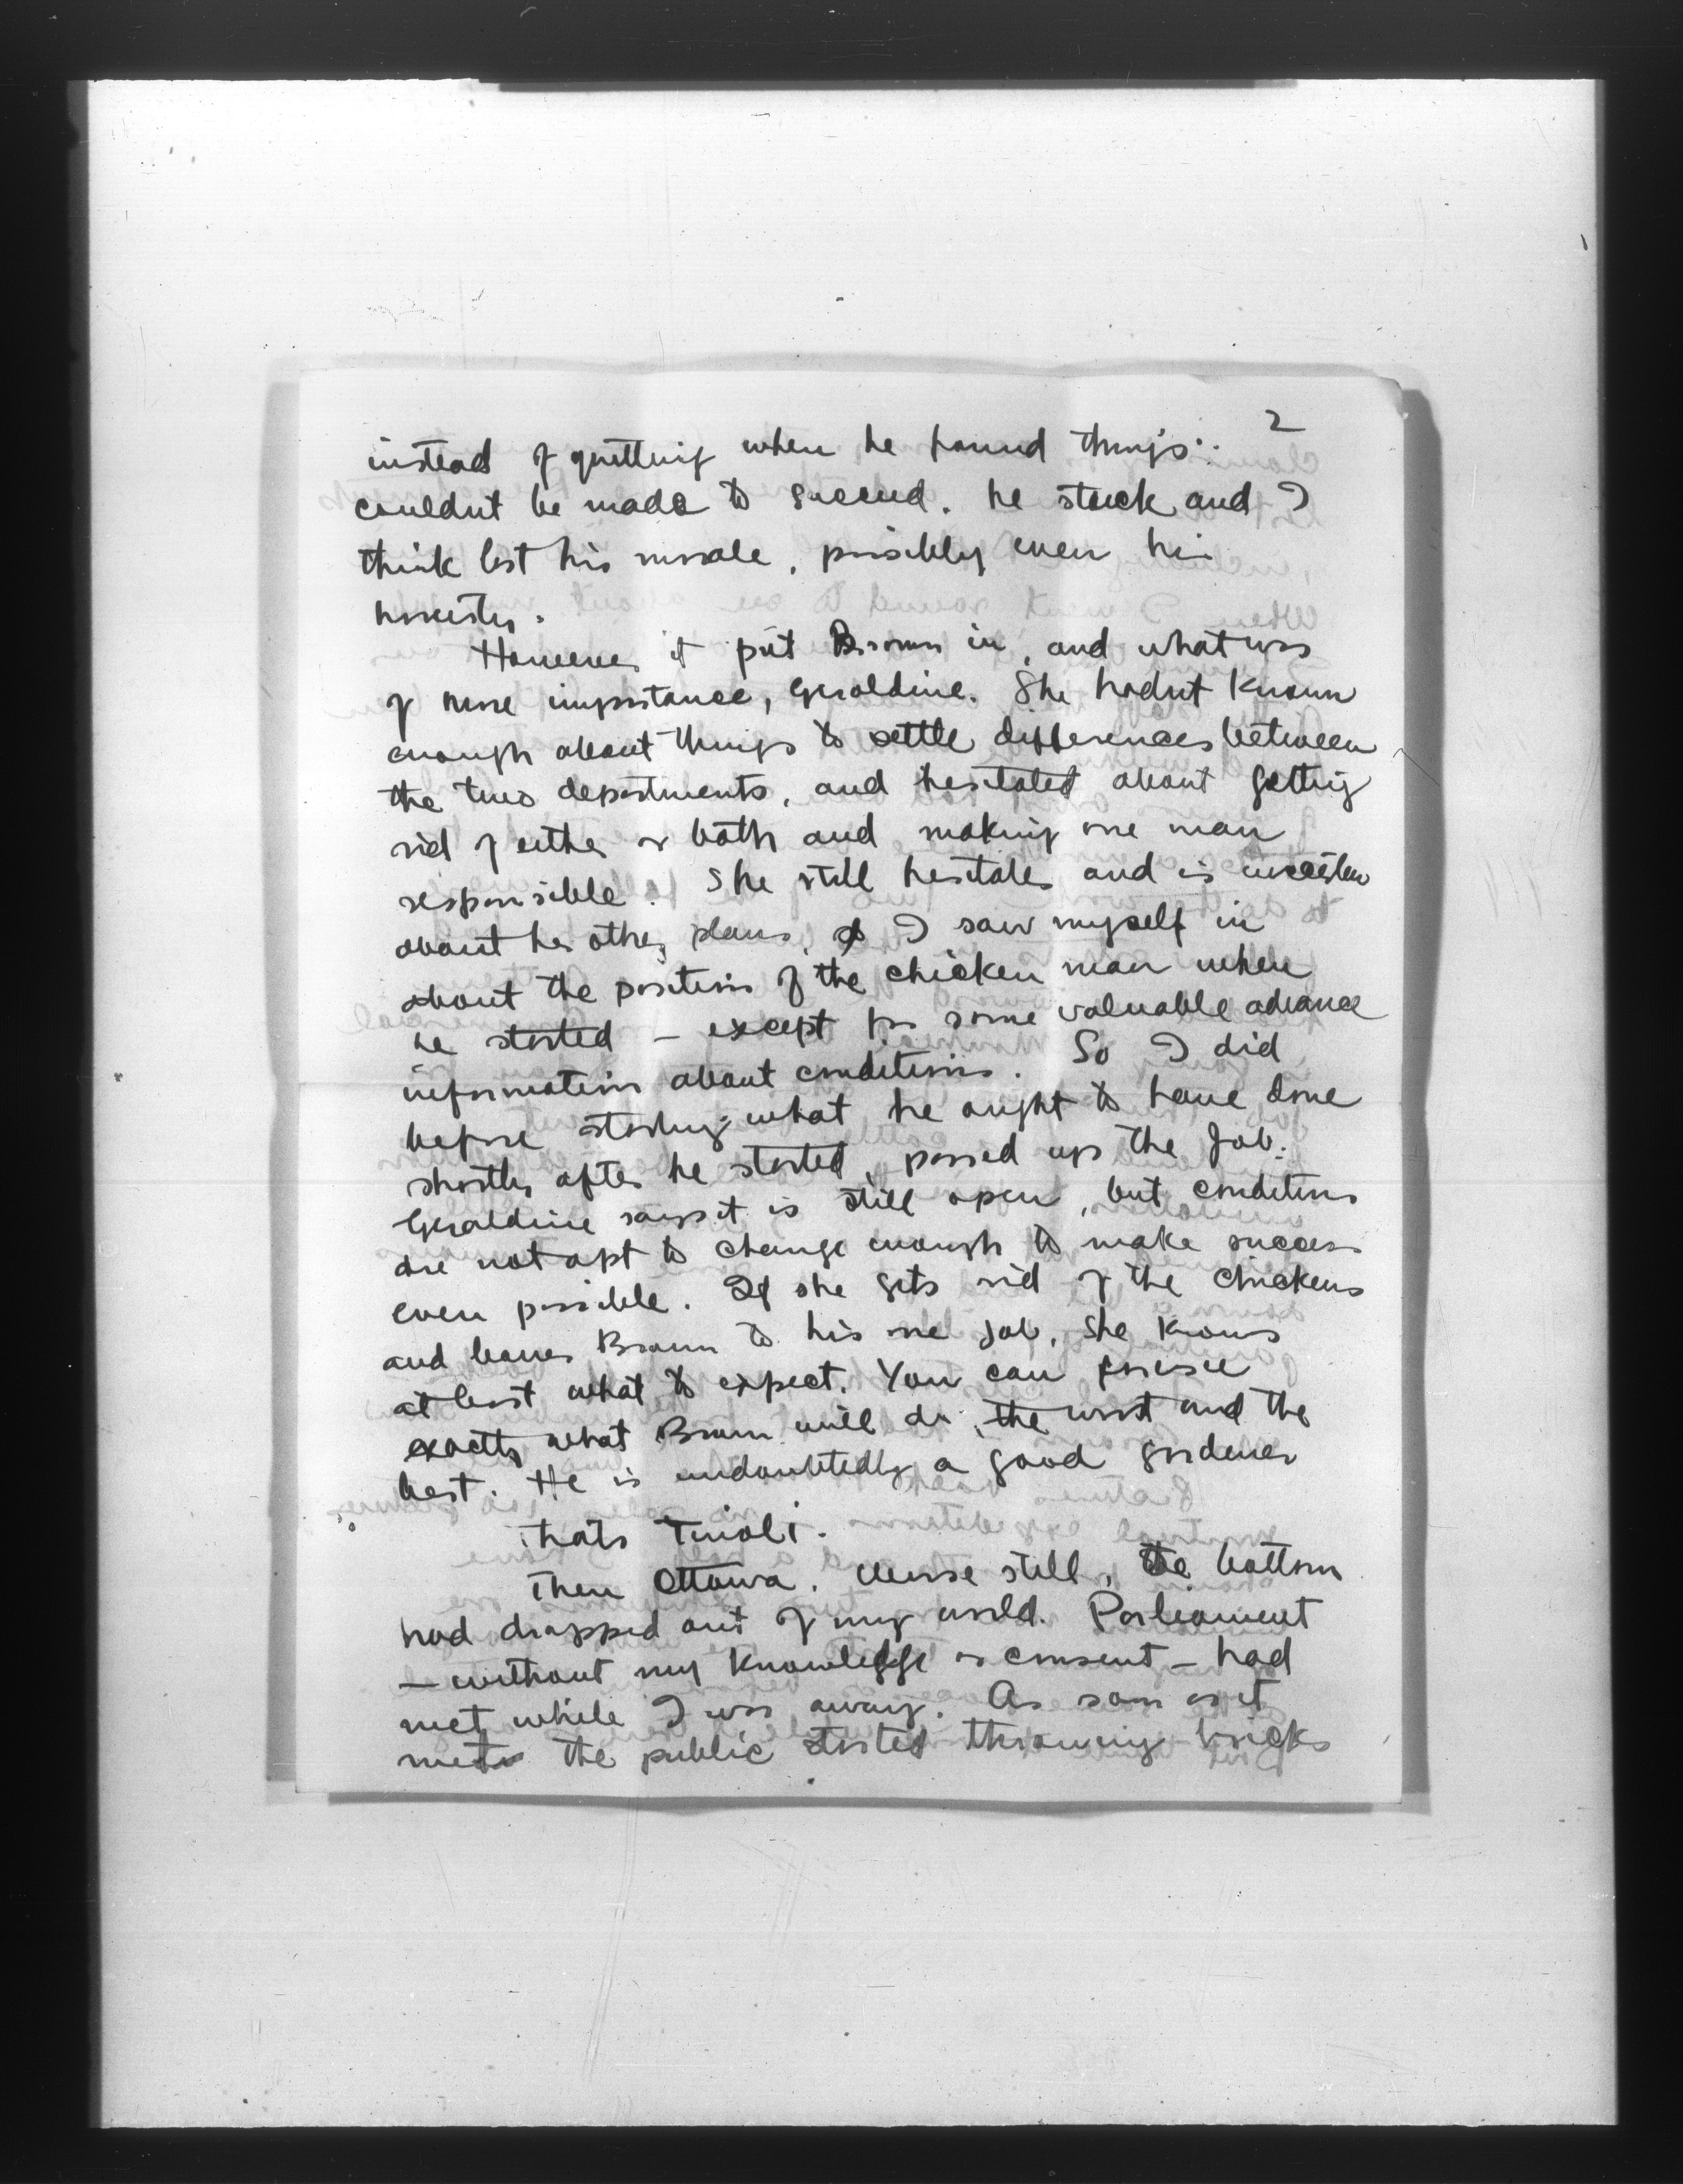 2
instead of quitting when he found things
couldnt be made to succeed. he stuck and I
think lost his morale, possibly even his
honesty.
However it put Brown in, and what was
of more importance, Geraldine. She hadnt known
enough about things to settle differences between
the two departments, and hesitated about getting
rid of either or both and making one man
responsible. She still hesitates and is uncertain
about her other plans. I saw myself in
about the position of the chicken man when
he started - except for some valuable advance
information about conditions. So I did
before starting what he ought to have done
shortly after he started, passed up the job.
Geraldine says it is still open, but conditions
are not apt to change enough to make success
even possible. If she gets rid of the chickens
and leaves Brown to his one job, she knows
at least what to expect. You can foresee
exactly what Brown will do, the worst and the
best. He is undoubtedly a good gardener
thats Tivoli.
Then Ottawa. Worse still, the bottom
had dropped out of my world. Parliament
- without my knowledge or consent - had
met while I was away. As soon as it
met the public started throwing bricks